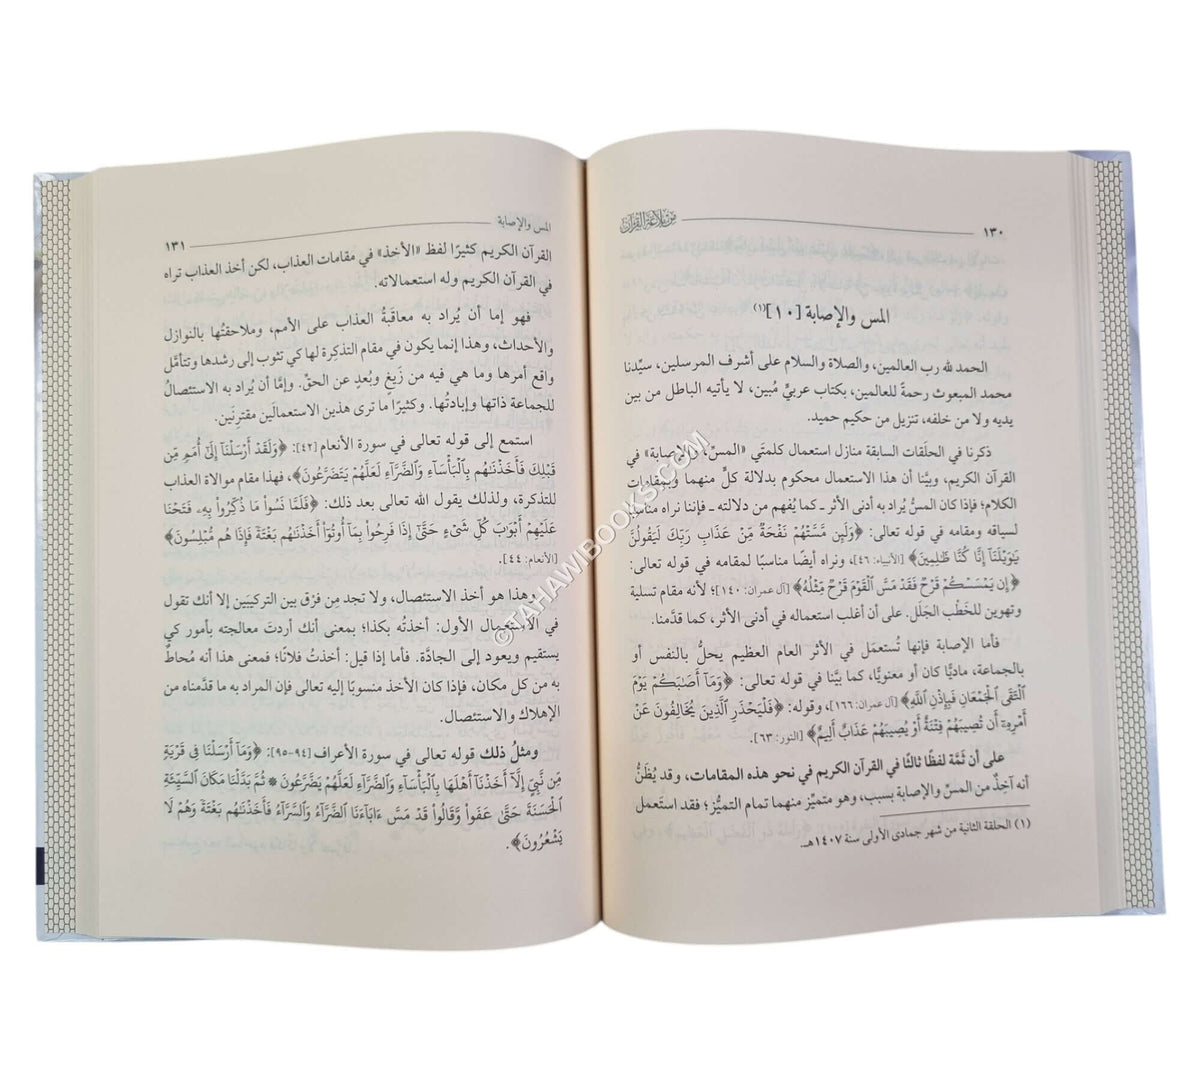 ١٣٠
من بلاغة القرآن
المس والإصابة [١٠](١)
الحمد لله رب العالمين، والصلاة والسلام على أشرف المرسلين، سيِّدنا
محمد المبعوث رحمةً للعالمين، بكتاب عربيٍّ مُبين، لا يأتيه الباطل من بين
يديه ولا من خلفه، تنزيل من حكيم حميد.
ذكرنا في الحلَقات السابقة منازل استعمال كلمتَي «المسّ، والإصابة» في
القرآن الكريم، وبيَّنا أن هذا الاستعمال محكوم بدلالة كلٍّ منهما وبمقامات
الكلام؛ فإذا كان المسُّ يُراد به أدنى الأثر ـ كما يُفهم من دلالته ـ فإننا نراه مناسبًا
لسياقه ومقامه في قوله تعالى: ﴿وَلَئِن مَّسَّتْهُمْ نَفْحَةٌ مِّنْ عَذَابِ رَبِّكَ لَيَقُولُنَّ
يَٰوَيْلَنَآ إِنَّا كُنَّا ظَٰلِمِينَ﴾ [الأنبياء: ٤٦]، ونراه أيضًا مناسبًا لمقامه في قوله تعالى:
﴿إِن يَمْسَسْكُمْ قَرْحٌ فَقَدْ مَسَّ الْقَوْمَ قَرْحٌ مِّثْلُهُ﴾ [آل عمران: ١٤٠]؛ لأنه مقام تسلية
وتهوين للخَطْب الجَلَل. على أن أغلب استعماله في أدنى الأثر، كما قدَّمنا.
فأما الإصابة فإنها تُستعمَل في الأثر العام العظيم يحلُّ بالنفس أو
بالجماعة، ماديًّا كان أو معنويًّا، كما بيَّنا في قوله تعالى: ﴿وَمَآ أَصَٰبَكُمْ يَوْمَ
الْتَقَى الْجَمْعَانِ فَبِإِذْنِ اللَّهِ﴾ [آل عمران: ١٦٦]، وقوله: ﴿فَلْيَحْذَرِ الَّذِينَ يُخَالِفُونَ عَنْ
أَمْرِهِ أَن تُصِيبَهُمْ فِتْنَةٌ أَوْ يُصِيبَهُمْ عَذَابٌ أَلِيمٌ﴾ [النور: ٦٣].
على أن ثَمَّة لفظًا ثالثًا في القرآن الكريم في نحو هذه المقامات، وقد يُظَنُّ
أنه آخِذٌ من المسِّ والإصابة بسبب، وهو متميِّز منهما تمام التميُّز؛ فقد استَعمل
(١) الحلقة الثانية من شهر جمادى الأولى سنة ١٤٠٧هـ.
المس والإصابة
١٣١
القرآن الكريم كثيرًا لفظ «الأخذ» في مقامات العذاب، لكن أخذ العذاب تراه
في القرآن الكريم وله استعمالاته.
فهو إما أن يُراد به معاقبةُ العذاب على الأمم، وملاحقتُها بالنوازل
والأحداث، وهذا إنما يكون في مقام التذكرة لها كي تثوب إلى رشدها وتتأمَّل
واقع أمرها وما هي فيه من زَيغٍ وبُعدٍ عن الحقّ. وإمَّا أن يُراد به الاستئصالُ
للجماعة ذاتها وإبادتُها. وكثيرًا ما ترى هذين الاستعمالَين مقترِنَين.
استمع إلى قوله تعالى في سورة الأنعام [٤٢]: ﴿وَلَقَدْ أَرْسَلْنَآ إِلَىٰٓ أُمَمٍ مِّن
قَبْلِكَ فَأَخَذْنَٰهُم بِالْبَأْسَآءِ وَالضَّرَّآءِ لَعَلَّهُمْ يَتَضَرَّعُونَ﴾، فهذا مقام موالاة العذاب
للتذكرة، ولذلك يقول الله تعالى بعد ذلك: ﴿فَلَمَّا نَسُوا۟ مَا ذُكِّرُوا۟ بِهِۦ فَتَحْنَا
عَلَيْهِمْ أَبْوَٰبَ كُلِّ شَىْءٍ حَتَّىٰٓ إِذَا فَرِحُوا۟ بِمَآ أُوتُوٓا۟ أَخَذْنَٰهُم بَغْتَةً فَإِذَا هُم مُّبْلِسُونَ﴾
[الأنعام: ٤٤].
وهذا هو أخذ الاستئصال، ولا تجد مِن فرْق بين التركيبَين إلا أنك تقول
في الاستعمال الأول: أخذتُه بكذا؛ بمعنى أنك أردتَ معالجته بأمور كي
يستقيم ويعود إلى الجادَّة. فأما إذا قيل: أخذتُ فلانًا؛ فمعنى هذا أنه مُحاطٌ
به من كل مكان، فإذا كان الأخذ منسوبًا إليه تعالى فإن المراد به ما قدَّمناه من
الإهلاك والاستئصال.
ومثلُ ذلك قوله تعالى في سورة الأعراف [٩٤-٩٥]: ﴿وَمَآ أَرْسَلْنَا فِى قَرْيَةٍ
مِّن نَّبِىٍّ إِلَّآ أَخَذْنَآ أَهْلَهَا بِالْبَأْسَآءِ وَالضَّرَّآءِ لَعَلَّهُمْ يَضَّرَّعُونَ * ثُمَّ بَدَّلْنَا مَكَانَ السَّيِّئَةِ
الْحَسَنَةَ حَتَّىٰ عَفَوا۟ وَّقَالُوا۟ قَدْ مَسَّ ءَابَآءَنَا الضَّرَّآءُ وَالسَّرَّآءُ فَأَخَذْنَٰهُم بَغْتَةً وَهُمْ لَا
يَشْعُرُونَ﴾.
©TAHAWIBOOKS.COM